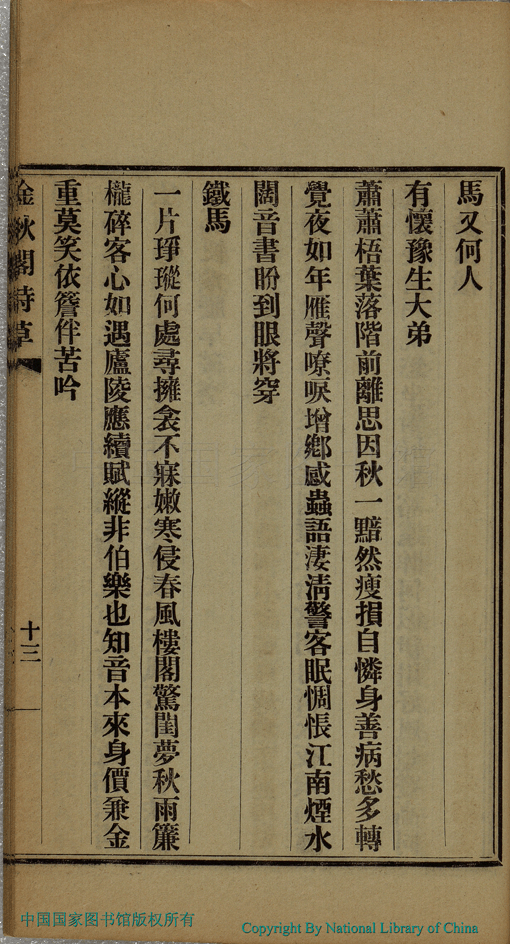 馬又何人
有懷豫生大弟
蕭蕭梧葉落階前離思因秋一黯然瘦損自憐身善病愁多轉
覺夜如年雁聲嘹唳增鄕感蟲語淒淸警客眠惆悵江南煙水
闊音書盼到眼將穿
鐵馬
一片琤瑽何處尋擁衾不寐嫩寒侵春風樓閣驚閨夢秋雨簾
櫳碎客心如遇廬陵應續賦縱非伯樂也知音本來身價兼金
重莫笑依簷伴苦吟
金秋閣詩草
十三
中国国家图书馆版权所有
Copyright By National Library of China